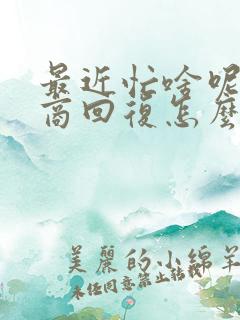 最近忙啥呢
商回復怎麼
美麗的小綿羊
未经同意禁止转载